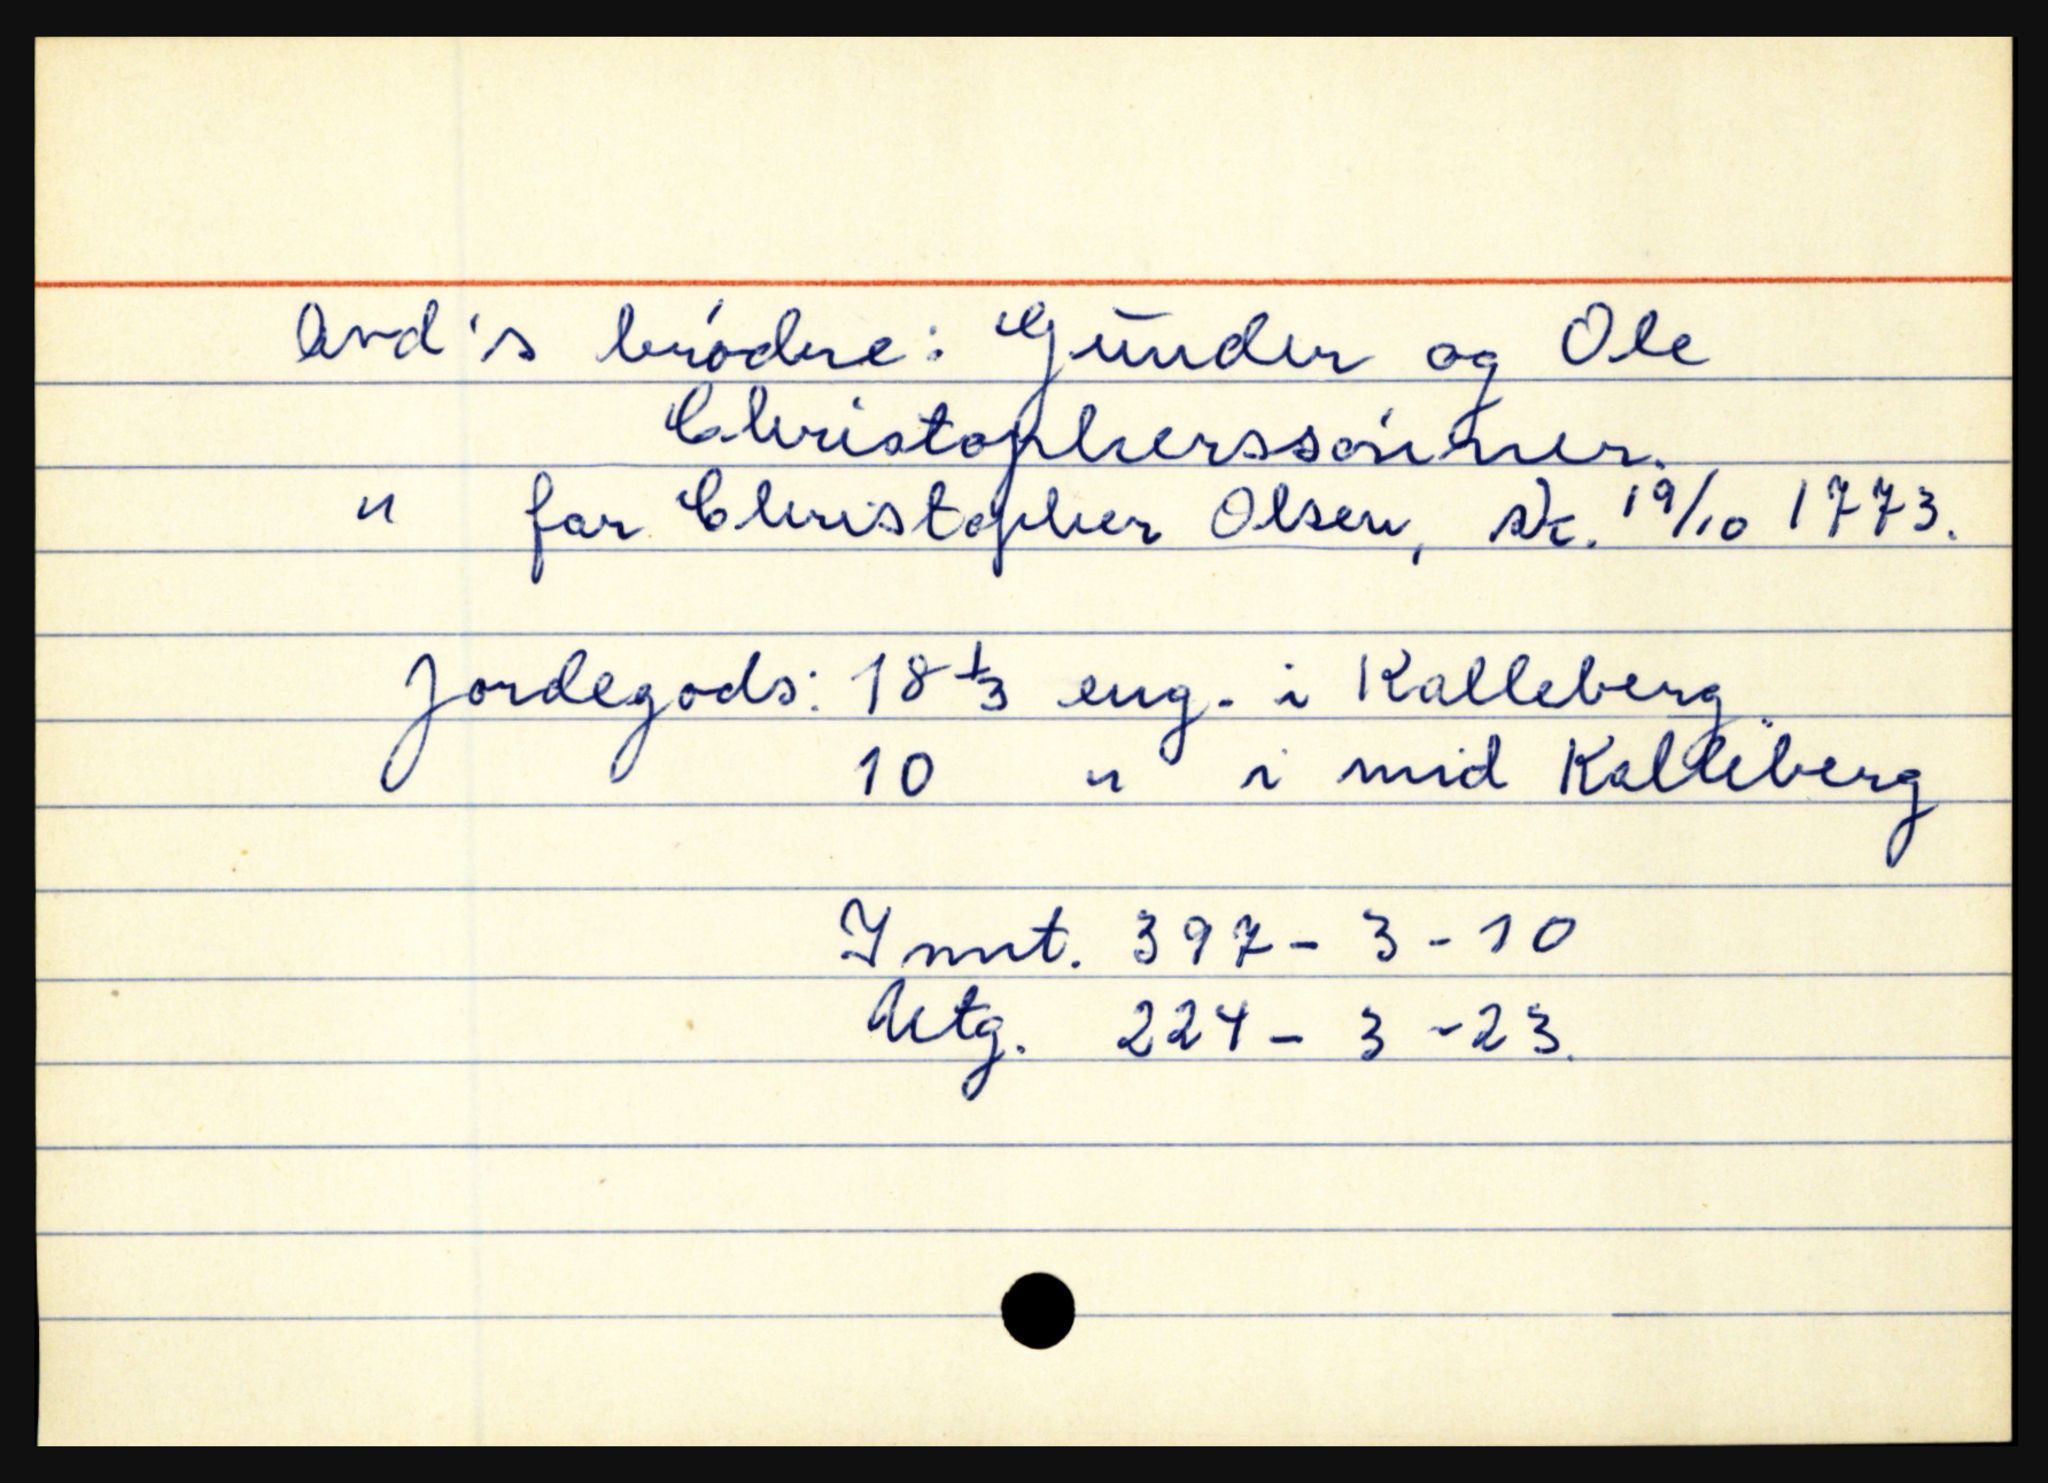 Avd's brødre: Gunder og Ole
Christopherssønner.
" far Christopher Olsen, sk. 19/10 1773.
Jordegods: 18 1/3 eng. i Kalleberg
10 " i mid Kalleberg
Innt. 397 - 3 - 10
Utg. 224 - 3 - 23.